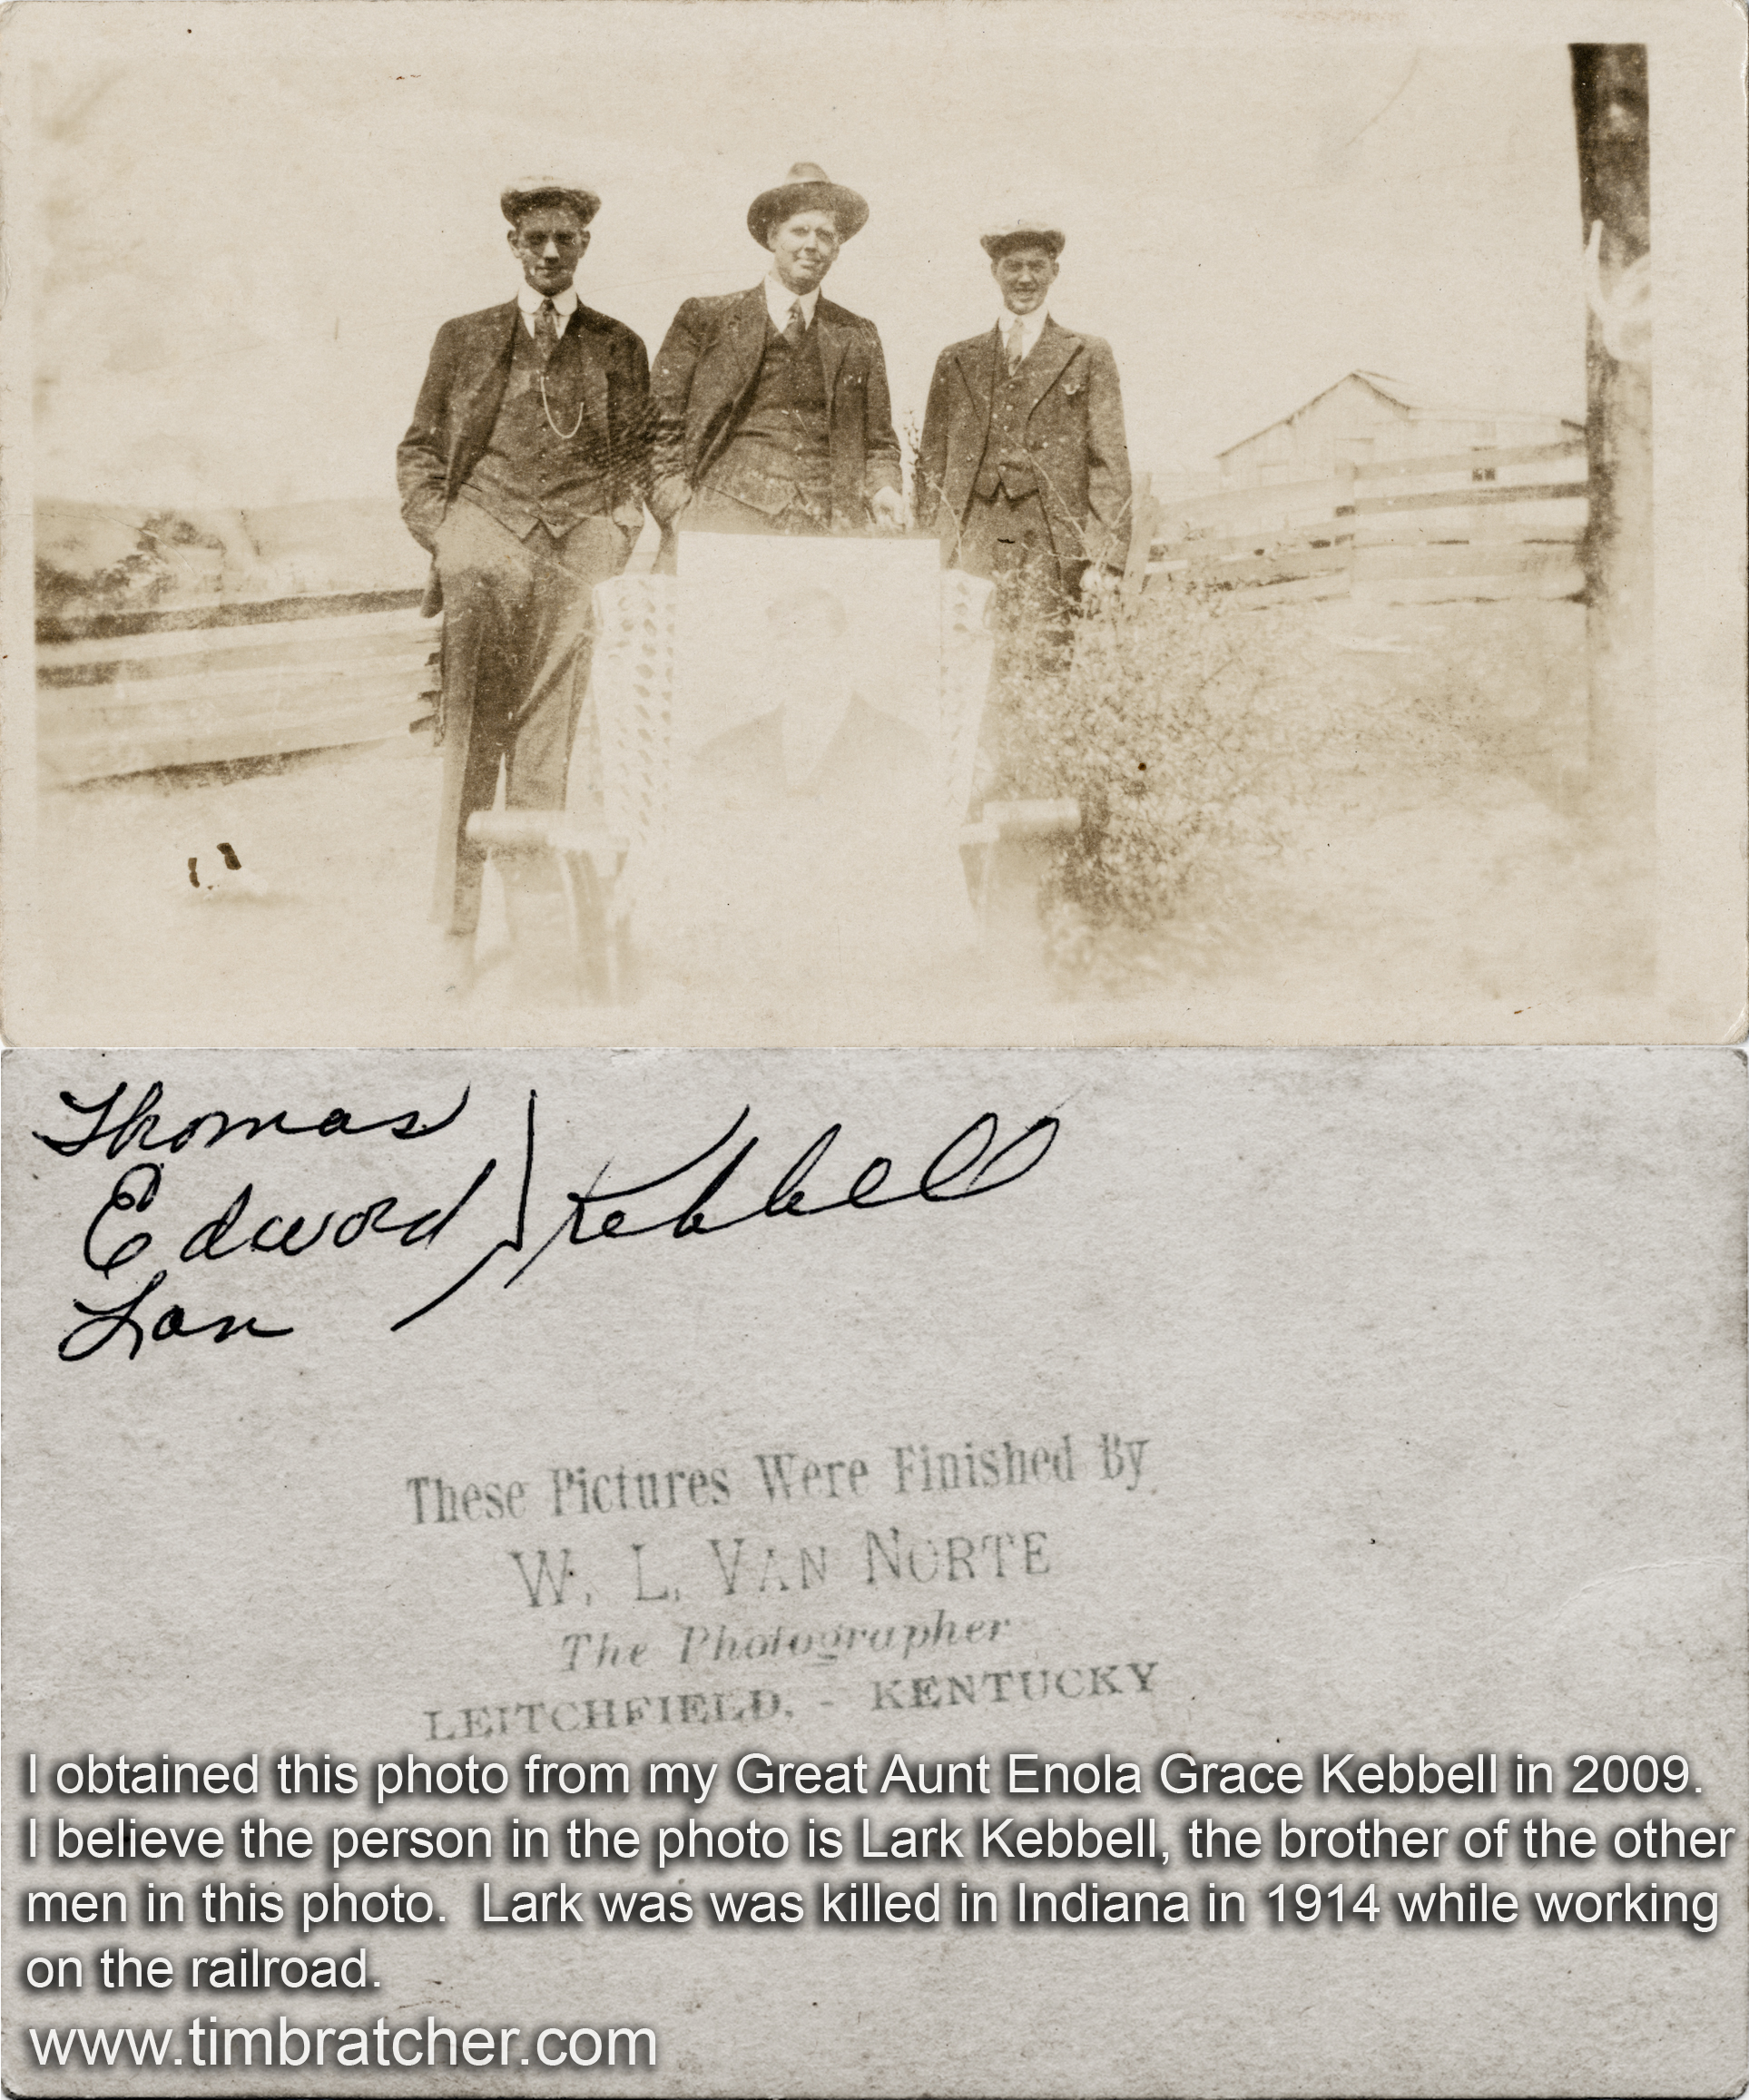 Thomas
Edword Kebbell
Lon
These Pictures Were Finished By
W. L. VAN NORTE
The Photographer
LEITCHFIELD, - KENTUCKY
I obtained this photo from my Great Aunt Enola Grace Kebbell in 2009.
I believe the person in the photo is Lark Kebbell, the brother of the other
men in this photo. Lark was was killed in Indiana in 1914 while working
on the railroad.
www.timbratcher.com